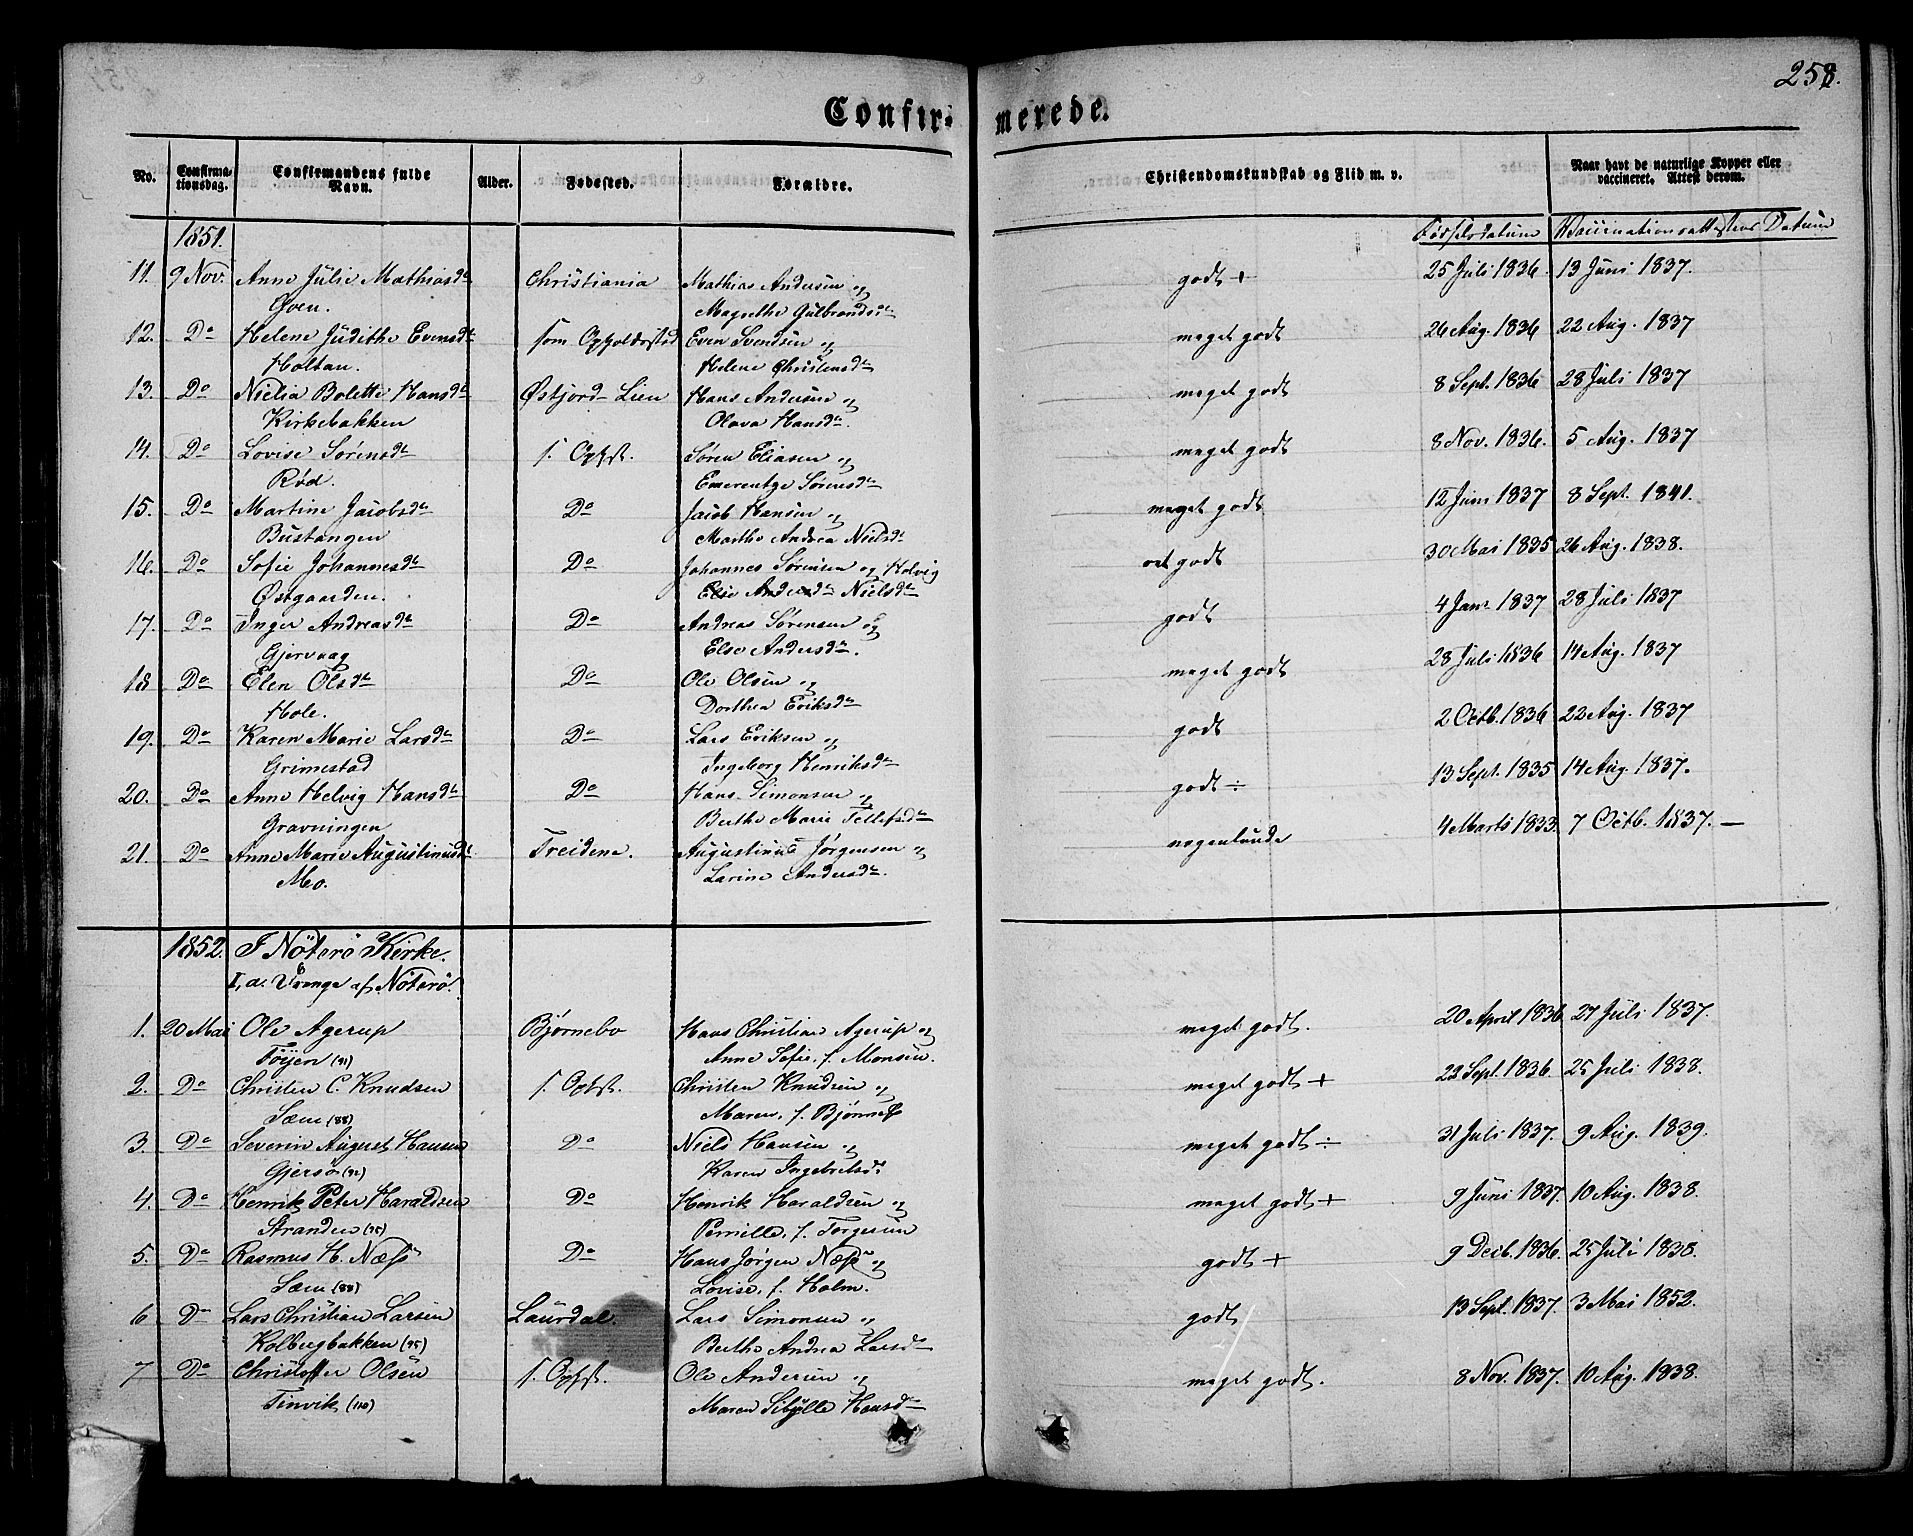 258.
Confir- merede.
No. Confirmationsdag. Confirmandens fulde Navn. Alder. Fødested. Forældre. Christendomskundskab og Flid m. v. Naar havt de naturlige Kopper eller vaccineret. Attest derom.
1851. Fødselsdatum Vaccinationsattestens Datum
11. 9 Nov. Anne Julie Mathiasdtr Christiania Mathias Andersen og godt + 25 Juli 1836. 13 Juni 1837.
Øven. Magrethe Gulbrandsdtr
12. Do Helene Judithe Evensdtr som Opholdsstad Even Svendsen og meget godt 26 Aug. 1836 22 Aug. 1837
Holtan. Helene Christensdtr
13. Do Nielia Bolette Hansdtr Østjord Lien Hans Andersen og meget godt 8 Sept. 1836 28 Juli 1837
Kirkebakken Olava Hansdtr.
14. Do Lovise Sørensdtr s. Ophst. Søren Eliasen og meget godt 8 Nov. 1836. 5 Aug. 1837
Rød. Emerentze Sørensdtr
15. Do Martine Jacobsdtr Do Jacob Hansen og meget godt 12 Juni 1837 8 Sept. 1841.
Bustangen Marthe Andrea Nielsdtr
16. Do Sofie Johannesdtr Do Johannes Sørensen og Helvig godt 30 Mai 1835 26 Aug. 1838.
Østgaarden. Else Andersdtr Nielsdtr
17. Do Inger Andreasdtr Do Andreas Sørensen og godt 4 Janr 1837 28 Juli 1837
Gjervaag Else Andersdtr.
18 Do Elen Olsdtr Do Ole Olsen og meget godt 28 Juli 1836 14 Aug. 1837
Hole. Dorthea Eriksdtr
19. Do Karen Marie Larsdtr Do Lars Eriksen og godt 2 Octb. 1836 22 Aug. 1837
Grimestad Ingeborg Henriksdtr
20. Do Anne Helvig Hansdtr Do Hans Simonsen og godt ÷ 13 Sept. 1835 14 Aug. 1837.
Gravningen Berthe Marie Tellefsdtr
21. Do Anne Marie Augustinusdtr Treidene. Augustinus Jørgensen og nogenlunde 4 Marts 1833. 7 Octb. 1837. —
Mo. Larine Andersdtr.
1852. I Nöterö Kirke.
I, a. Drenge af Nöterö.
1. 20 Mai Ole Agerup Bjørnebo Hans Christian Agerup og meget godt. 20 April 1836 27 Juli 1837.
Töijen (91) Anne Sofie, f. Monsen.
2. Do Christen C. Knudsen s. Ophst. Christen Knudsen og meget godt + 22 Sept. 1836. 25 Juli 1838.
Sæm (88) Maren, f. Bjønnes
3. Do Severin August Hansen Do Niels Hansen og meget godt ÷ 31 Juli 1837. 9 Aug. 1839.
Gjersö (92) Karen Ingebretsdr
4. Do Henrik Peter Haraldsen Do Henrik Haraldsen og meget godt + 9 Juni 1837. 10 Aug. 1838.
Stranden (95) Pernille, f. Torgersen
5. Do Rasmus H. Næss Do Hans Jørgen Næss og godt + 9 Decb. 1836. 25 Juli 1838.
Sæm (88) Lovise, f. Holm.
6 Do Lars Christian Larsen Laurdal. Lars Simonsen og godt 13 Sept. 1837. 3 Mai 1852.
Kolbergbakken (95) Berthe Andrea Larsdtr
7 Do Christoffer Olsen s. Ophst. Ole Andersen og meget godt. 8 Nov. 1837. 10 Aug. 1838.
Tinvik (110) Maren Sibylle Hansdtr